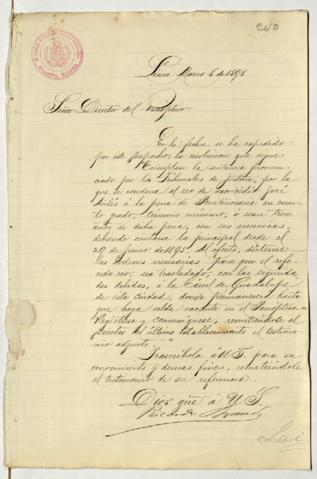 210
Lima, Marzo 8 de 1898
Señor Director del Panóptico.
En la fecha se ha expedido
por este despacho, la resolucion que sigue:
"Cúmplase la sentencia pronun-
ciada por los Tribunales de justicia, por la
que se condena al reo de homicidio José
á la pena de Penitenciaria en cuar-
to grado, termino minimo, ó sean trece
años de dicha pena, con sus accesorias
debiendo contarse la principal desde el
de Junio de 1895. Al efecto, dictense
las órdenes necesarias para que el refe-
rido reo, sea trasladado, con las segurida-
des debidas, á la Carcel de Guadalupe
de esta ciudad, donde permanecerá hasta
que haya celda vacante en el Panóptico.
Regístrese, comuníquese, remitiéndole al
Director del último establecimiento el testimo-
nio adjunto."
Trascríbola á US. para su
conocimiento y demas fines, remitiéndole
el testimonio de su referencia.
Dios gue. á US.
Ricardo